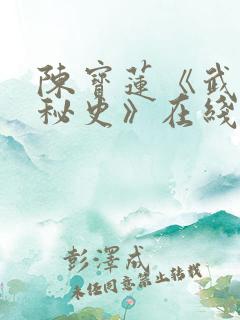 陳寶蓮《武
秘史》在綫
彭澤成
未经同意禁止转载